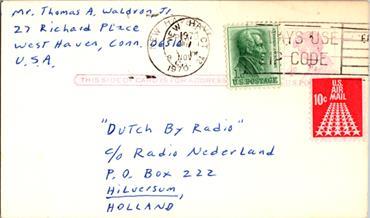 Mr. Thomas A. Waldron Jr.
27 Richard Place
West Haven, Conn. 06516
U.S.A.
NEW HAVEN CT
19
NOV
1970
ALWAYS USE
ZIP CODE
U.S. POSTAGE
THIS SIDE OF CARD IS FOR ADDRESS
10c
U.S.
AIR
MAIL
"Dutch By Radio"
c/o Radio Nederland
P.O. Box 222
Hilversum,
HOLLAND